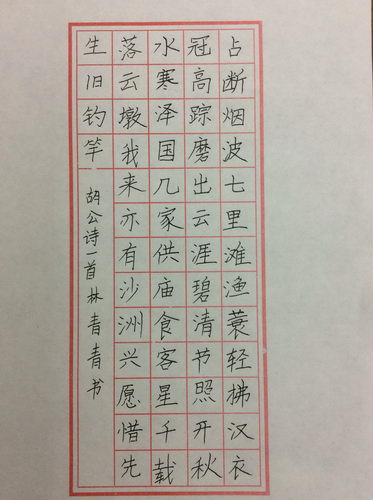 占断烟波七里滩渔蓑轻拂汉衣
冠高踪磨出云涯碧清节照开秋
水寒泽国几家供庙食客星千载
落云墩我来亦有沙洲兴愿惜先
生旧钓竿
胡公诗一首林青青书